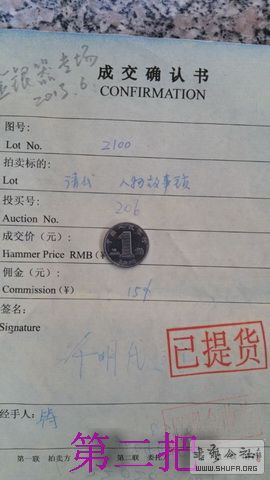 金银器专场
2013.6
成交确认书
CONFIRMATION
图号:
Lot No. 2100
拍卖标的:
Lot 清代 人物故事锁
投买号:
Auction No. 206
成交价（元）:
Hammer Price RMB(¥)
佣金（元）:
Commission(¥) 15%
签名:
Signature
已提货
经手人:
第二把
第一联 拍卖方
第二联
WWW.SHUFA.ORG